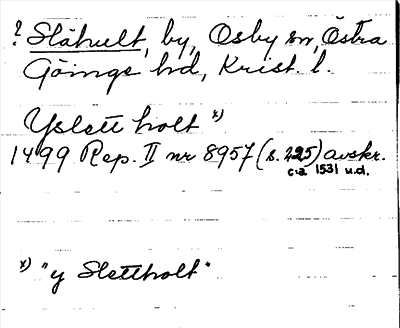 ? Slähult, by, Osby sn, Östra
Göinge hd, Krist. l.
Yslett holt x)
1499 Rep. II nr 8957 (s. 225) avskr.
ca 1531 u.d.
x) "y Slettholt"